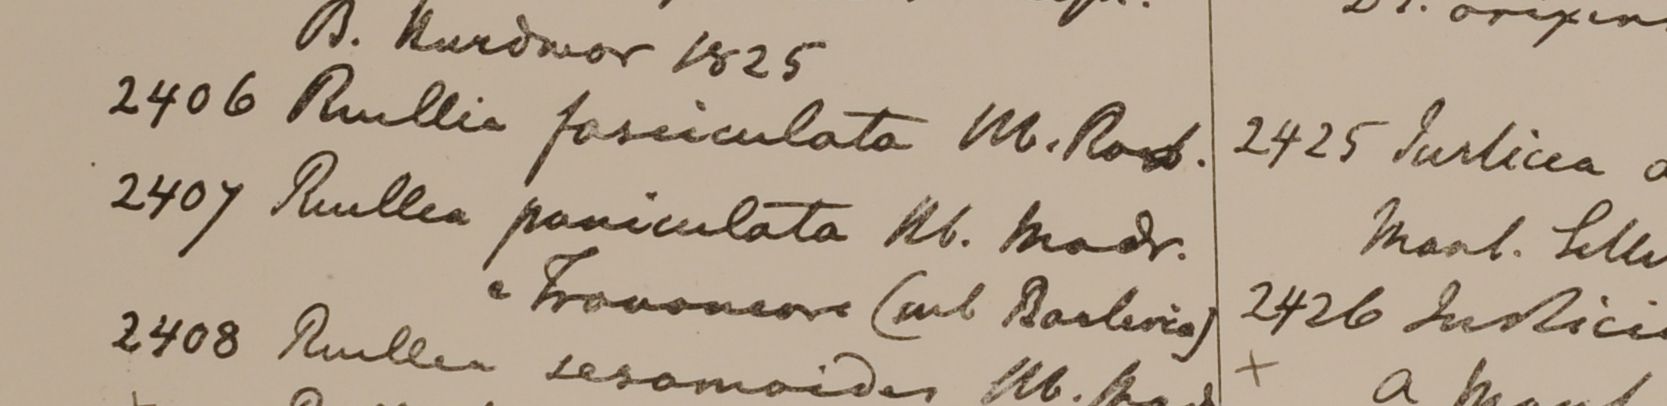 B. Hurdwar 1825
2406 Ruellia fasciculata Hb. Roxb.
2407 Ruellia paniculata Hb. Madr.
e Travancore (sub Barleria)
2408 Ruellia sesamoides Hb. Mad
2425 Justicia
Maul.
2426 Justicia
+
a Maul